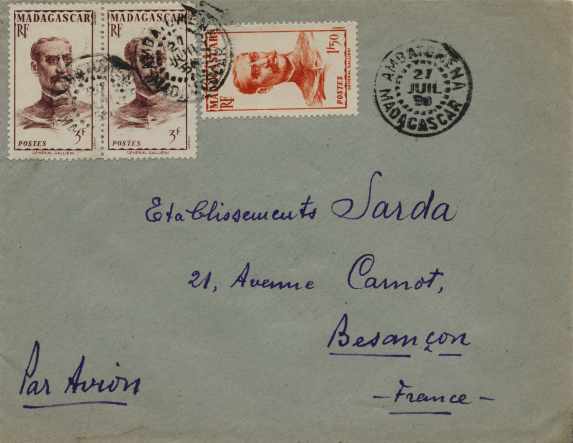 MADAGASCAR
RF
3F
POSTES
GÉNÉRAL GALLIÉNI
MADAGASCAR
RF
3F
POSTES
GÉNÉRAL GALLIÉNI
MADAGASCAR
RF
1F50
POSTES
27
JUIL
27
JUIL
MADAGASCAR
Etablissements Sarda
21, Avenue Carnot,
Besançon
- France -
Par Avion